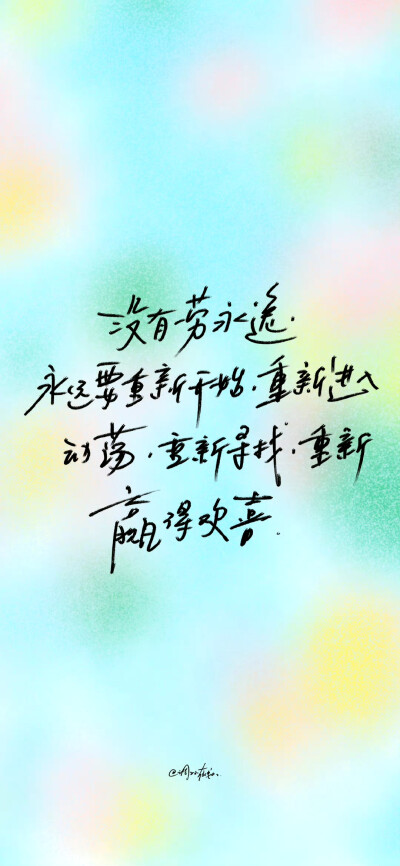 没有一劳永逸.
永远要重新开始.重新进入
动荡.重新寻找.重新
赢得欢喜.